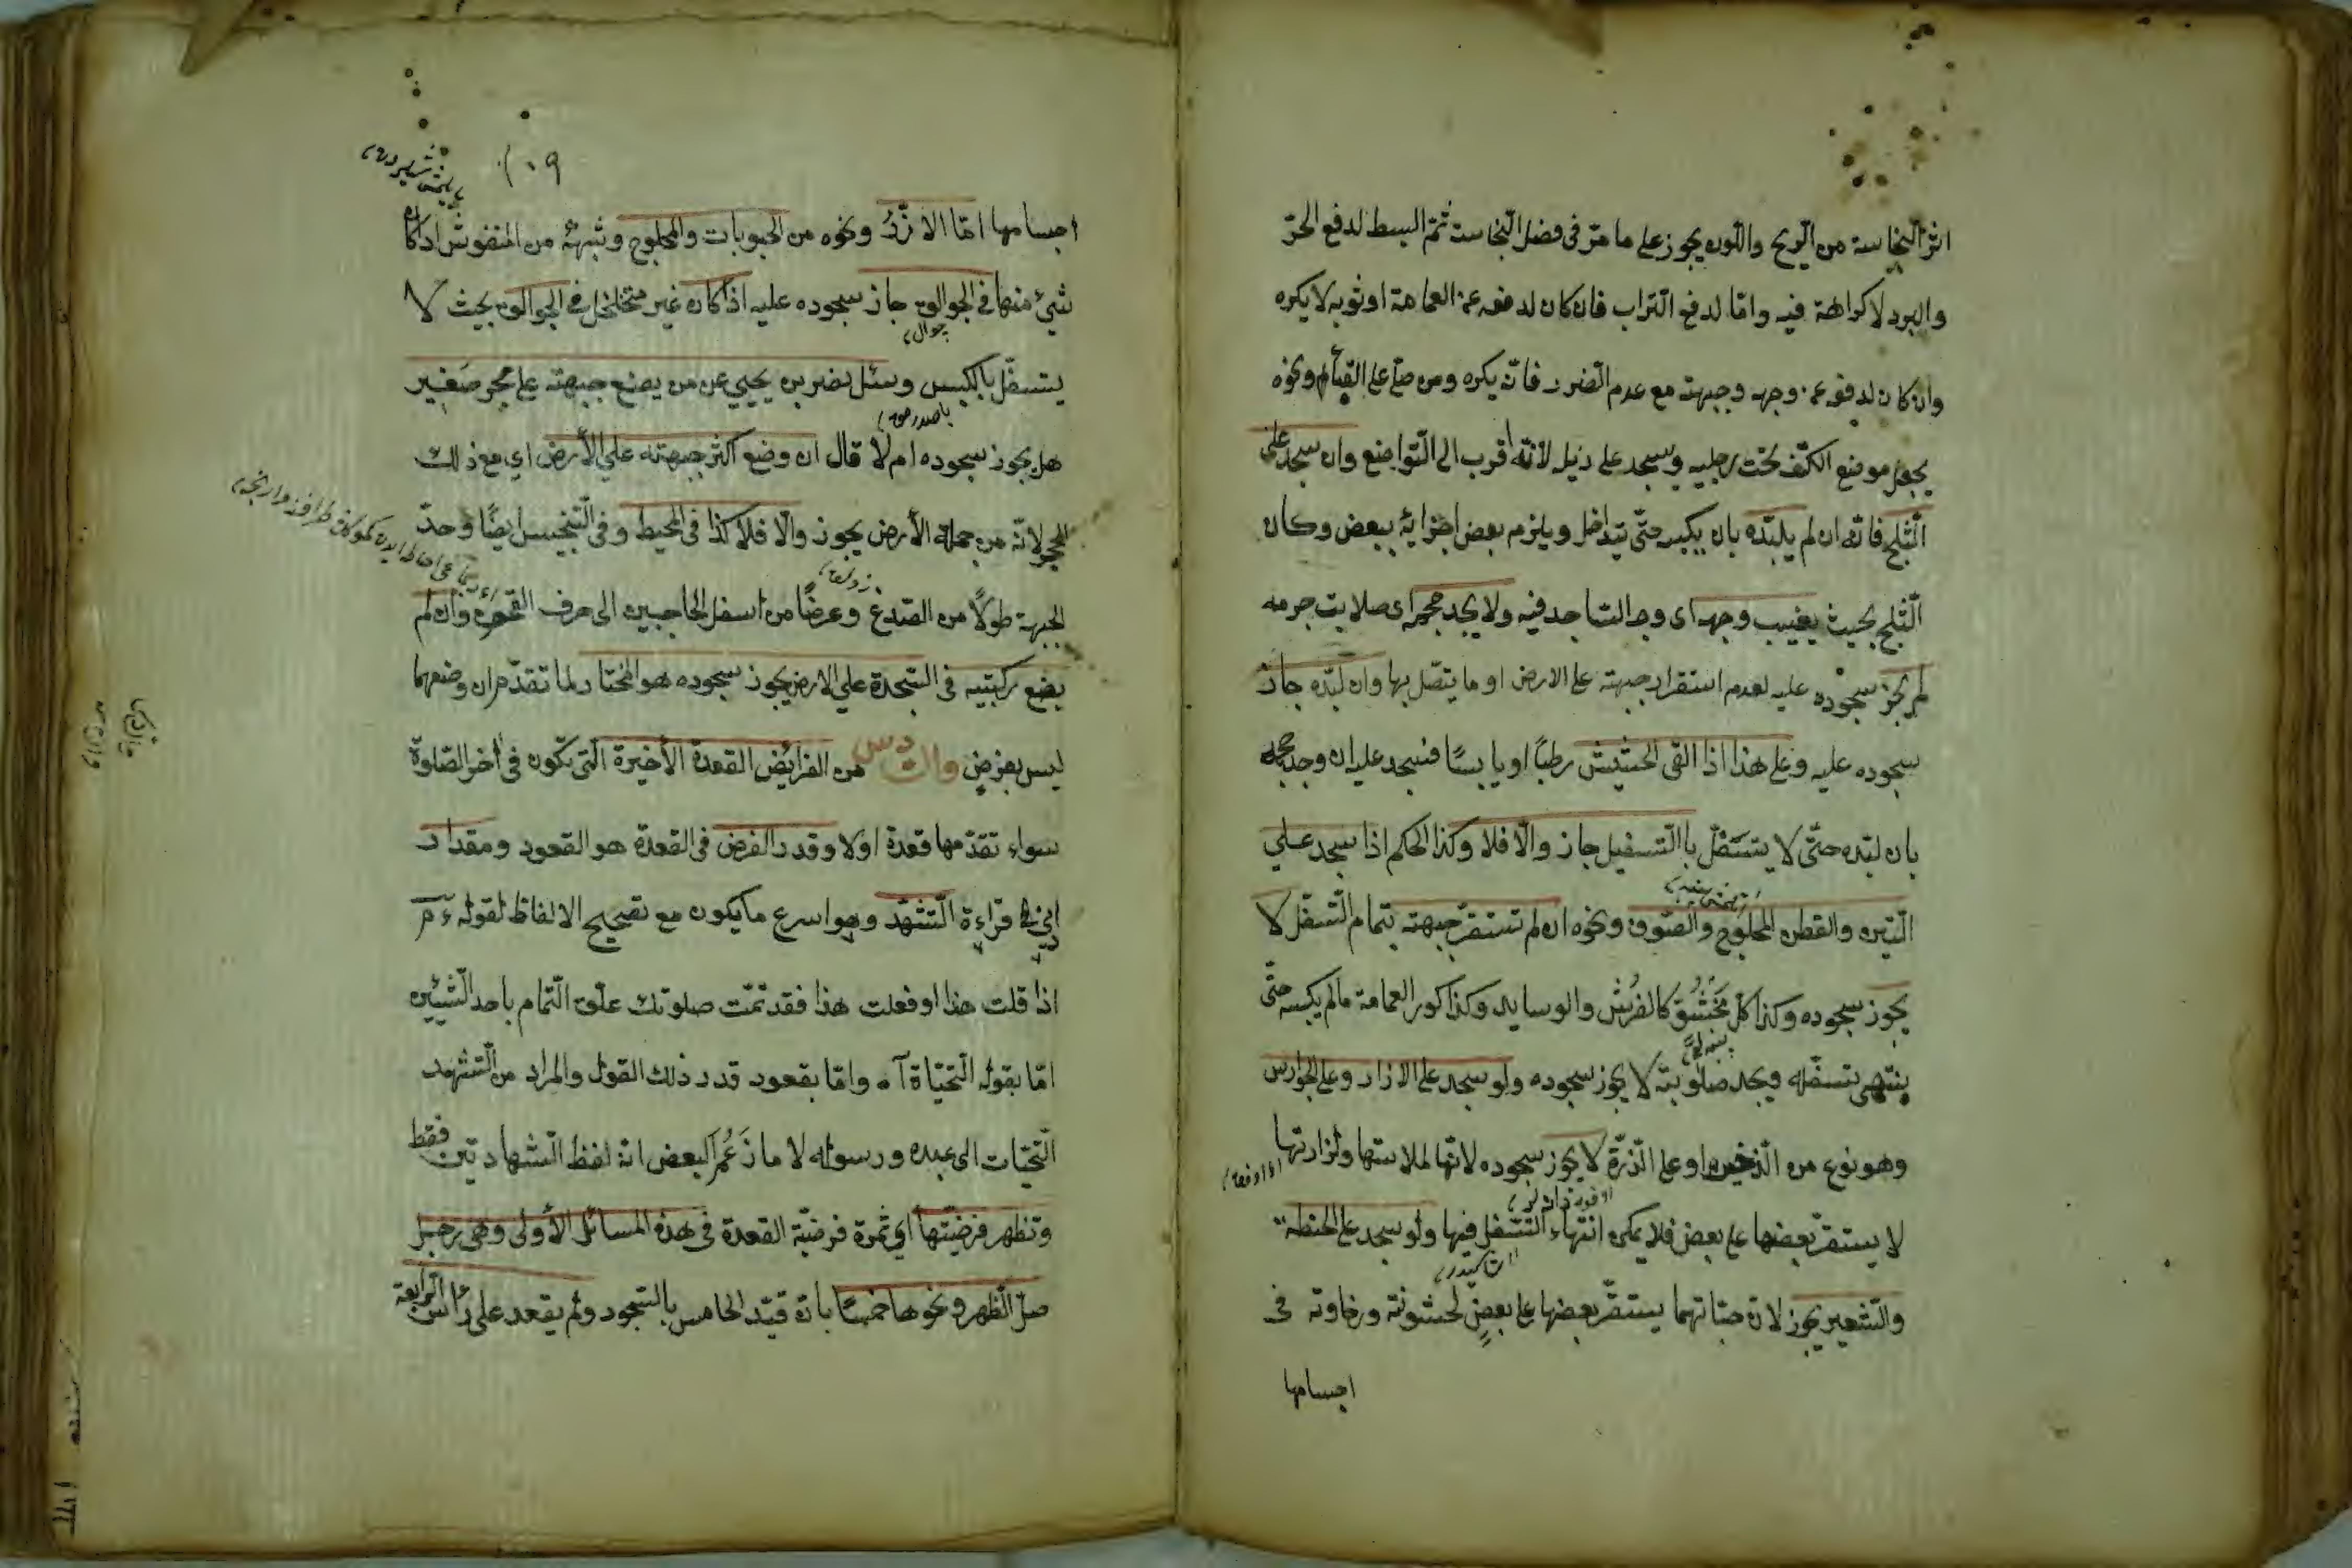 اثر النجاسة من الريح واللون يجوز على ما مرّ فى فصل النجاسة ثمّ البسط لدفع الحرّ
والبرد لا كراهة فيه وامّا لدفع التراب فان كان لدفعه عن العمامة او ثوبه لا يكره
وان كان لدفعه عن وجهه وجبهته مع عدم الضرر فانّه يكره ومن صلّى على القباء ونحوه
يجعل موضع الكتف تحت رجليه ويسجد على ذيله لانّه اقرب الى التواضع وان سجد على
الثلج فانّه ان لم يلبّده بان يكبس حتّى يتداخل ويلزم بعض اجزائه ببعض وكان
الثلج بحيث يغيب وجهه اى وجه الساجد فيه ولا يجد حجمه اى صلابت جرمه
لم يجز سجوده عليه لعدم استقرار جبهته على الارض او ما يتصل بها وان لبّده جاز
سجوده عليه وعلى هذا اذا القى الحشيش رطبًا او يابسًا فسجد عليه ان وجد حجمه
بان لبّده حتّى لا يتسفّل بالتسفيل جاز والّا فلا وكذا الحكم اذا سجد علي
التبن والقطن المحلوج والصّوف ونحوه ان لم تستقرّ جبهته بتمام التسفل لا
يجوز سجوده وكذا كلّ محشوّ كالفُرُش والوسايد وكذا كور العمامة مالم يكبسه حتّى
ينتهى تسفّله ويجد صلوبته لا يجوز سجوده ولو سجد على الارز او على الجوارس
وهو نوع من الدّخن او على الذّرّة لا يجوز سجوده لانّها لملاستها ولزازتها
لا يستقرّ بعضها على بعض فلا يمكن انتهاء التسفل فيها ولو سجد على الحنطة
والشعير يجوز لانّ حبّاتهما يستقرّ بعضها على بعضٍ لخشونة ورخاوة فى
اجسامها
٢٠٩
اجسامها امّا الارُزّ ونحوه من الحبوبات والمحلوج وشبهه من المنفوش اذا كان
شيئ منها فى الجوالق جاز سجوده عليه اذا كان غير متخلخل فى الجوالق بحيث لا
جوال
يتسفّل بالكبس وسئل نصر بن يحيي عن من يضع جبهته على حجر صغير
هل يجوز سجوده ام لا قال ان وضع اكثر جبهته علي الأرض اي مع ذلك
الحجر لانّه من جملة الأرض يجوز والّا فلا كذا فى المحيط وفى التجنيس ايضًا وحدّ
الجبهة طولًا من الصّدغ وعرضًا من اسفل الحاجبين الى حرف القحف وان لم
يضع ركبتيه فى السّجدة علي الارض يجوز سجوده هو المختار لما تقدّم ان وضعهما
ليس بفرضٍ والسادس من الفرائض القعدة الأخيرة الّتى تكون فى أخر الصّلوة
سواء تقدّمها قعدة اولا وقدر الفرض فى القعدة هو القعود ومقدار
ادنى قراءة التّشهّد وهو اسرع ما يكون مع تصحيح الالفاظ لقوله ءم
اذا قلت هذا او فعلت هذا فقد تمّت صلوتك علّق التّمام باحد الشّيئين
امّا بقوله التّحيّاة آه وامّا بقعود قدر ذلك القول والمراد من التّشهّد
التّحيّات الى عبده ورسوله لا ما زَعَم البعض انّه لفظ الشّهادتين فقط
وتظهر فرضيّتها اي ثمرة فرضيّة القعدة فى هذه المسائل الأولى وهى رجل
صلّ الظهر ونحوها خمسًا بان قيّد الخامس بالسّجود ولم يقعد على رأس الرابعة